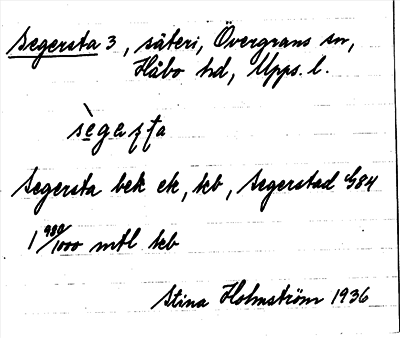 Segersta 3, säteri, Övergrans sn,
Håbo hd, Upps. l.
sègaṣṭa
Segersta bek ek, kb, Segerstad G84
1 980/1000 mtl kb
Stina Holmström 1936